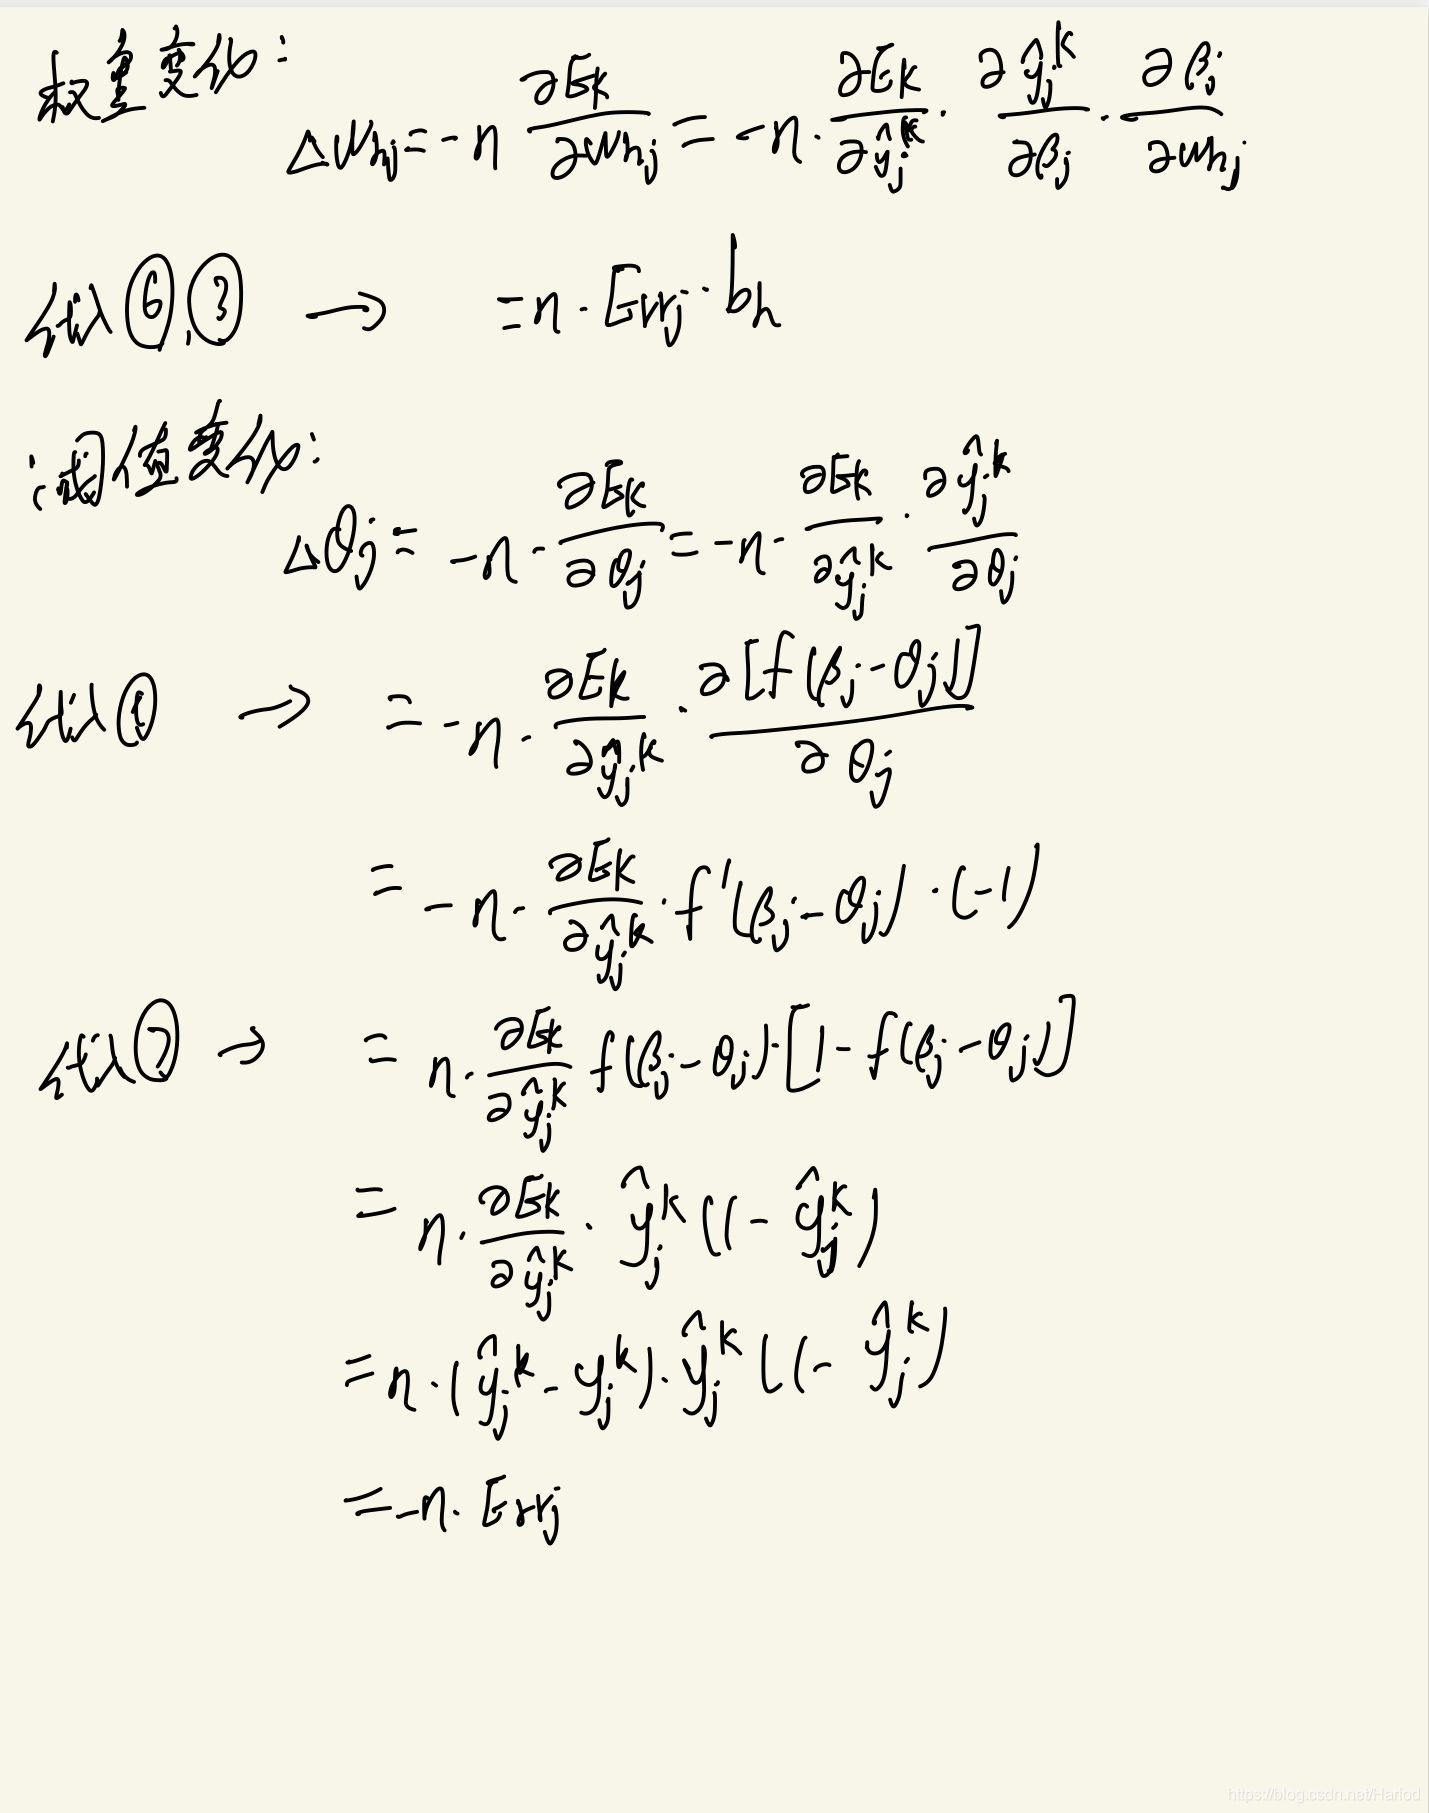 权重变化:
Δwhj = -η ∂Ek/∂whj = -η · ∂Ek/∂ŷj^k · ∂ŷj^k/∂βj · ∂βj/∂whj
代入⑥,③ → = η · Errj · bh
阈值变化:
Δθj = -η · ∂Ek/∂θj = -η · ∂Ek/∂ŷj^k · ∂ŷj^k/∂θj
代入① → = -η · ∂Ek/∂ŷj^k · ∂[f(βj - θj)]/∂θj
= -η · ∂Ek/∂ŷj^k · f'(βj - θj) · (-1)
代入⑦ → = η · ∂Ek/∂ŷj^k f(βj - θj) · [1 - f(βj - θj)]
= η · ∂Ek/∂ŷj^k · ŷj^k (1 - ŷj^k)
= η · (ŷj^k - yj^k) · ŷj^k (1 - ŷj^k)
= -η · Errj
https://blog.csdn.net/Harlod